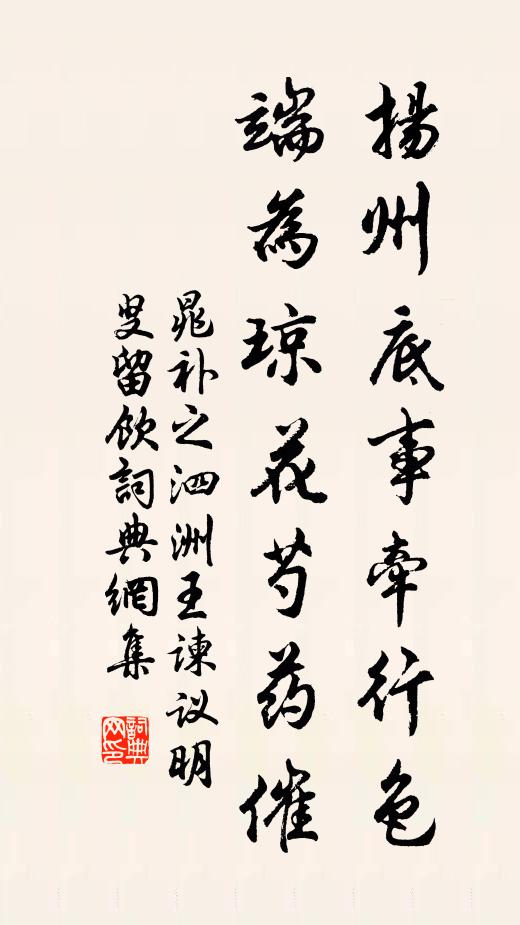 揚州底事牽行色
端為琼花芍药催
晁补之泗洲王諫议明
叟留飲詞典網集
詞典网印